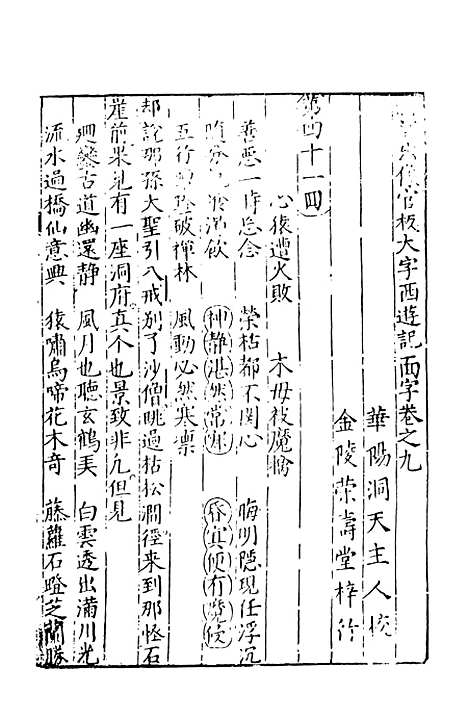 官板大字西遊記面字卷之九
華陽洞天主人校
金陵榮壽堂梓行
第四十一回
心猿遭火敗　木母被魔擒
善惡一時忘念　榮枯都不關心　晦明隱現任浮沉
隨分飢飡渴飲　神靜湛然常寂　昏冥便有魔侵
五行蹭破禪林　風動必然寒凛
却說那孫大聖引八戒別了沙僧跳過枯松澗徑來到那怪石
崖前果見有一座洞府真个也景致非凡但見
迴鑾古道幽還靜　風月也聽玄鶴美　白雲透出滿川光
流水過橋仙意興　猿嘯鳥啼花木奇　藤蘿石磴芝蘭勝